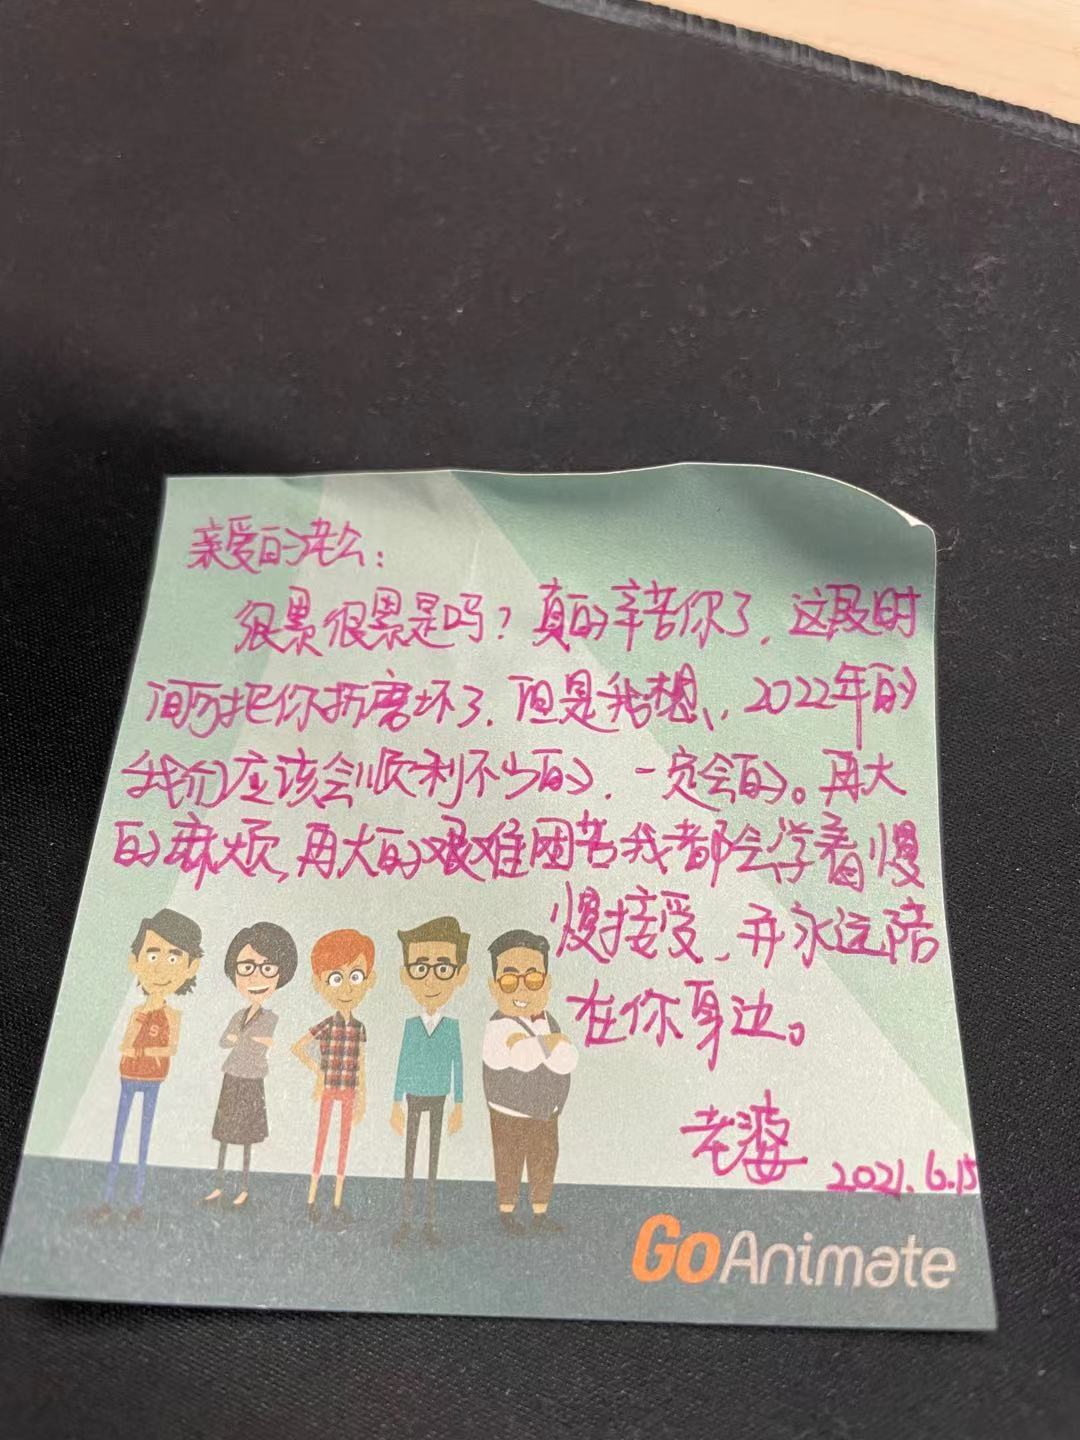 亲爱的老公：
很累很累是吗？真的辛苦你了，这段时
间可把你折磨坏了，但是我想，2022年的
我们应该会顺利不少的，一定会的。再大
的麻烦，再大的艰难困苦我都会学着慢
慢接受，并永远陪
在你身边。
老婆 2021.6.15
GoAnimate